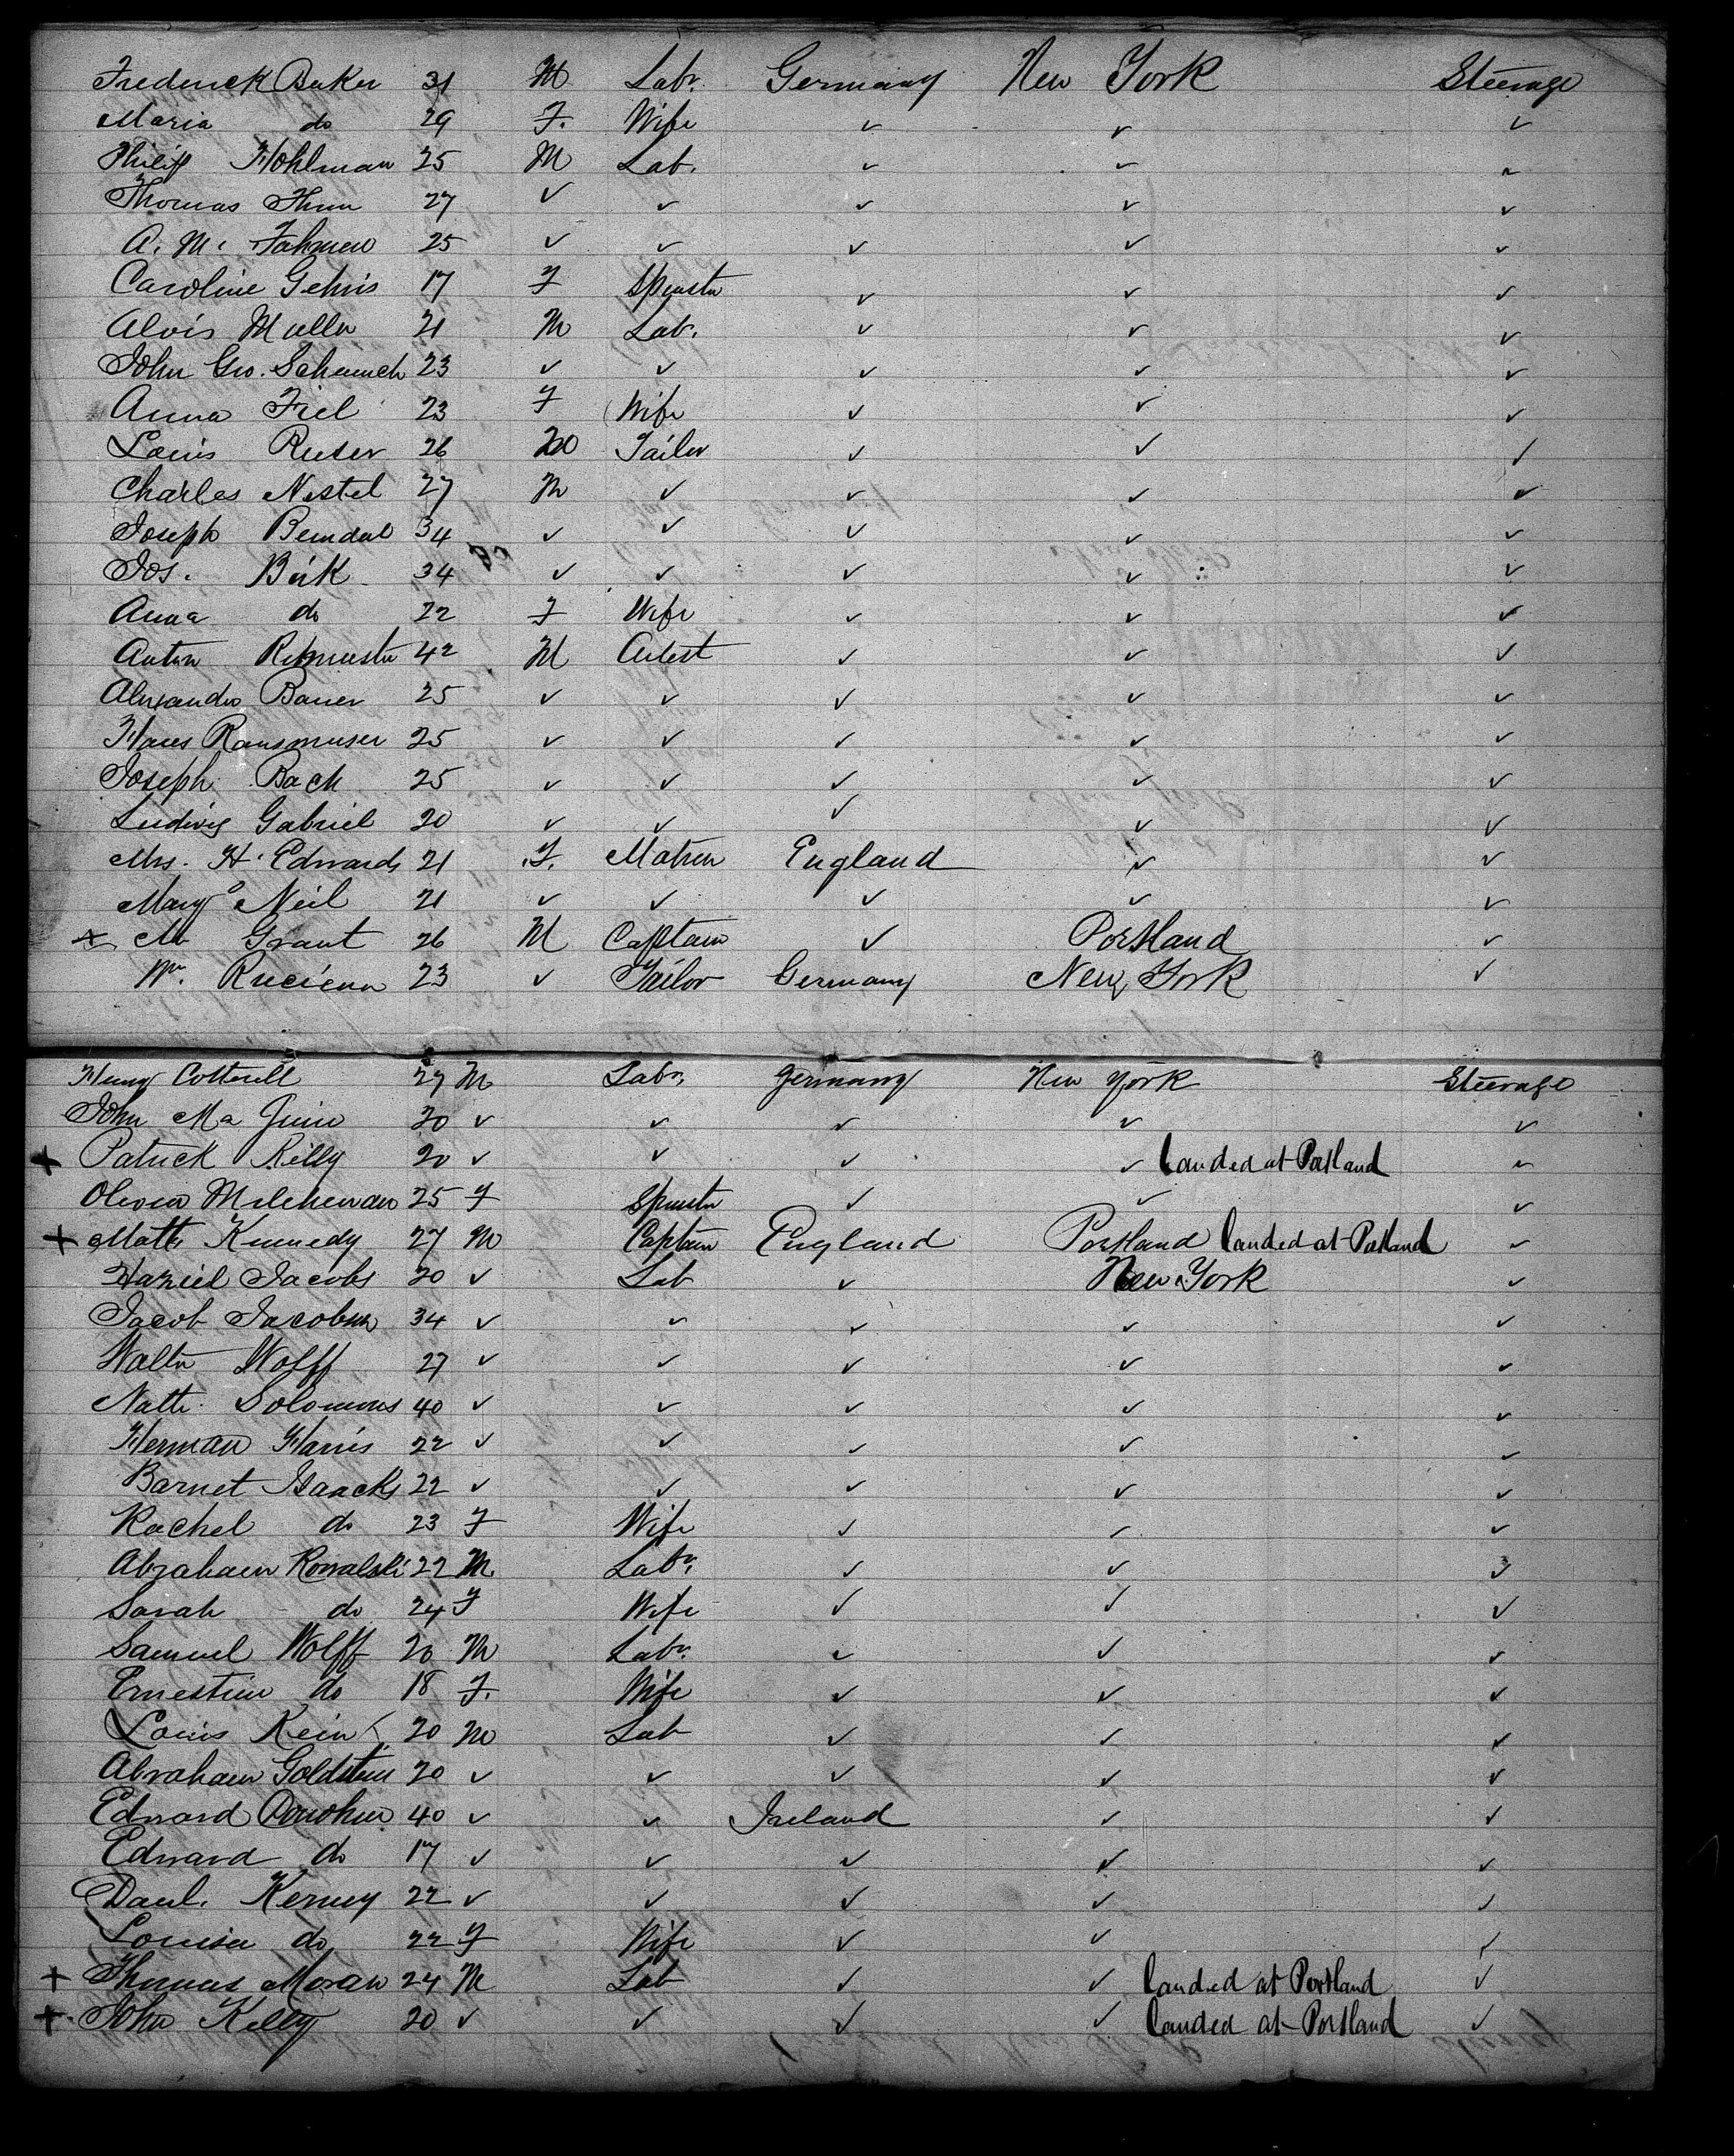 Frederick Baker 31 M Labr. Germany New York Steerage
Maria do 29 F. Wife ✓ ✓ ✓
Philip Hohlman 25 M Lab. ✓ ✓ ✓
Thomas Thun 27 ✓ ✓ ✓ ✓ ✓
A. M. Fahmen 25 ✓ ✓ ✓ ✓ ✓
Caroline Gehris 17 F Spinster ✓ ✓ ✓
Alois Muller 21 M Lab. ✓ ✓ ✓
John Geo. 23 ✓ ✓ ✓ ✓ ✓
Anna Fiel 23 F Wife ✓ ✓ ✓
Louis Reeser 26 M Tailor ✓ ✓ ✓
Charles Nestel 27 M ✓ ✓ ✓ ✓
Joseph 34 ✓ ✓ ✓ ✓ ✓
Jos. Birk 34 ✓ ✓ ✓ ✓ ✓
Anna do 22 F Wife ✓ ✓ ✓
Anton 42 M Artist ✓ ✓ ✓
Alexander Bauer 25 ✓ ✓ ✓ ✓ ✓
Hans Rausmuser 25 ✓ ✓ ✓ ✓ ✓
Joseph Bach 25 ✓ ✓ ✓ ✓ ✓
Ludwig Gabriel 20 ✓ ✓ ✓ ✓ ✓
Mrs. H. Edwards 21 F. Matron England ✓ ✓
Mary O Neil 21 ✓ ✓ ✓ ✓ ✓
+ Mr Grant 26 M Captain ✓ Portland ✓
Wm. 23 ✓ Tailor Germany New York ✓
Henry Cotterell 27 M Labr. Germany New York Steerage
John Ma Guire 20 ✓ ✓ ✓ ✓ ✓
+ Patrick Killy 20 ✓ ✓ ✓ ✓ landed at Portland ✓
25 F Spinster ✓ ✓ ✓
+ Matth Kennedy 27 M Captain England Portland landed at Portland ✓
Jacobs 20 ✓ Lab ✓ New York ✓
Jacob Jacobson 34 ✓ ✓ ✓ ✓ ✓
Walter Wolff 27 ✓ ✓ ✓ ✓ ✓
Nath. Solomons 40 ✓ ✓ ✓ ✓ ✓
Herman Harris 22 ✓ ✓ ✓ ✓ ✓
Barnet Isaacks 22 ✓ ✓ ✓ ✓ ✓
Rachel do 23 F Wife ✓ ✓ ✓
Abraham Kowalski 22 M Labr. ✓ ✓ ✓
Sarah do 24 F Wife ✓ ✓ ✓
Samuel Wolff 20 M Labr. ✓ ✓ ✓
Ernestine do 18 F. Wife ✓ ✓ ✓
Louis Kein 20 M Lab ✓ ✓ ✓
Abraham Goldstein 20 ✓ ✓ ✓ ✓ ✓
Edward Donohue 40 ✓ ✓ Ireland ✓ ✓
Edward do 17 ✓ ✓ ✓ ✓ ✓
Danl. Kerney 22 ✓ ✓ ✓ ✓ ✓
Louisa do 22 F Wife ✓ ✓ ✓
+ Thomas Moran 24 M Lab ✓ ✓ landed at Portland ✓
+ John Kelly 20 ✓ ✓ ✓ ✓ landed at Portland ✓